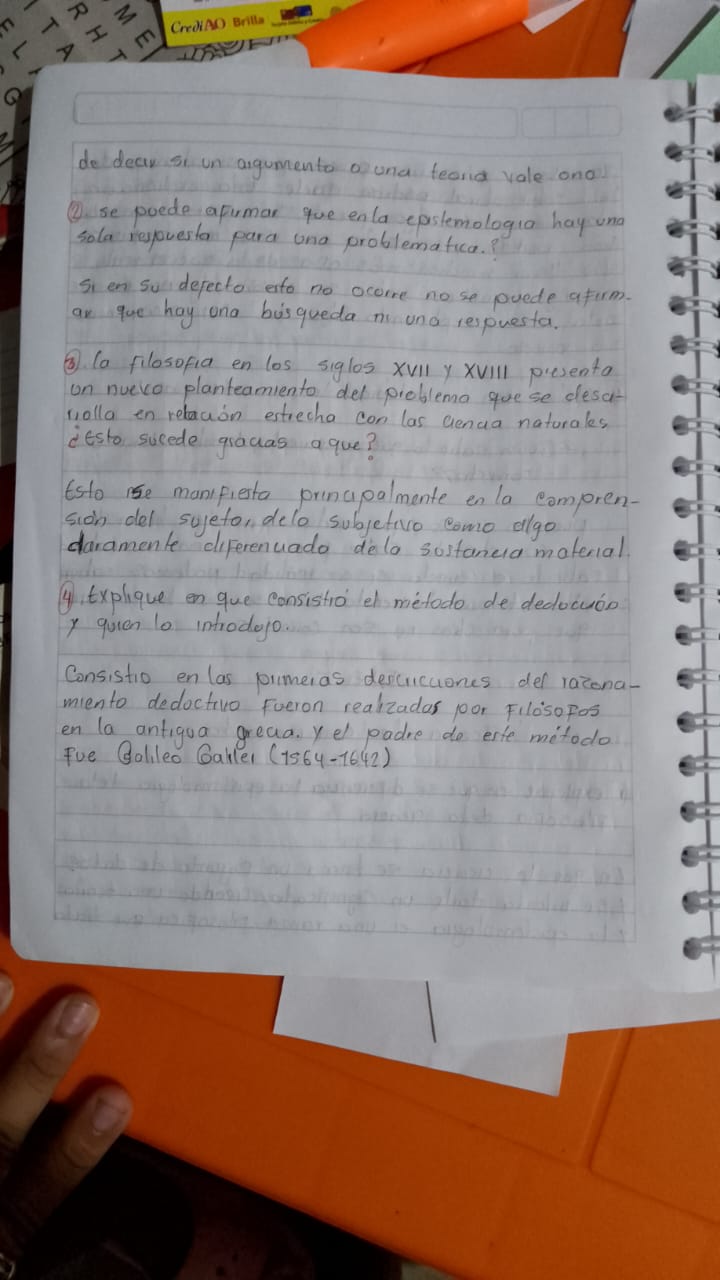 CrediAO Brilla
de decir si un argumento o una teoria vale ono
② se puede afirmar que enla epistemologia hay una
sola respuesta para una problematica.?
Si en su defecto esto no ocorre no se puede afirm-
ar que hay una búsqueda ni una respuesta.
③ la filosofia en los siglos XVII y XVIII presenta
un nuevo planteamiento del problema que se desa-
rrolla en relación estrecha con las ciencia naturales
¿Esto sucede gracias a que?
Esto se manifiesta principalmente en la compren-
sión del sujeto, delo subjetivo como algo
claramente diferenciado dela sustancia material.
④ Explique en que consistió el método de deducción
y quien lo introdujo.
Consistio en las primeras descricciones del razona-
miento deductivo Fueron realizadas por Filósofos
en la antigua grecia. y el padre de este método
Fue Galileo Galilei (1564-1642)